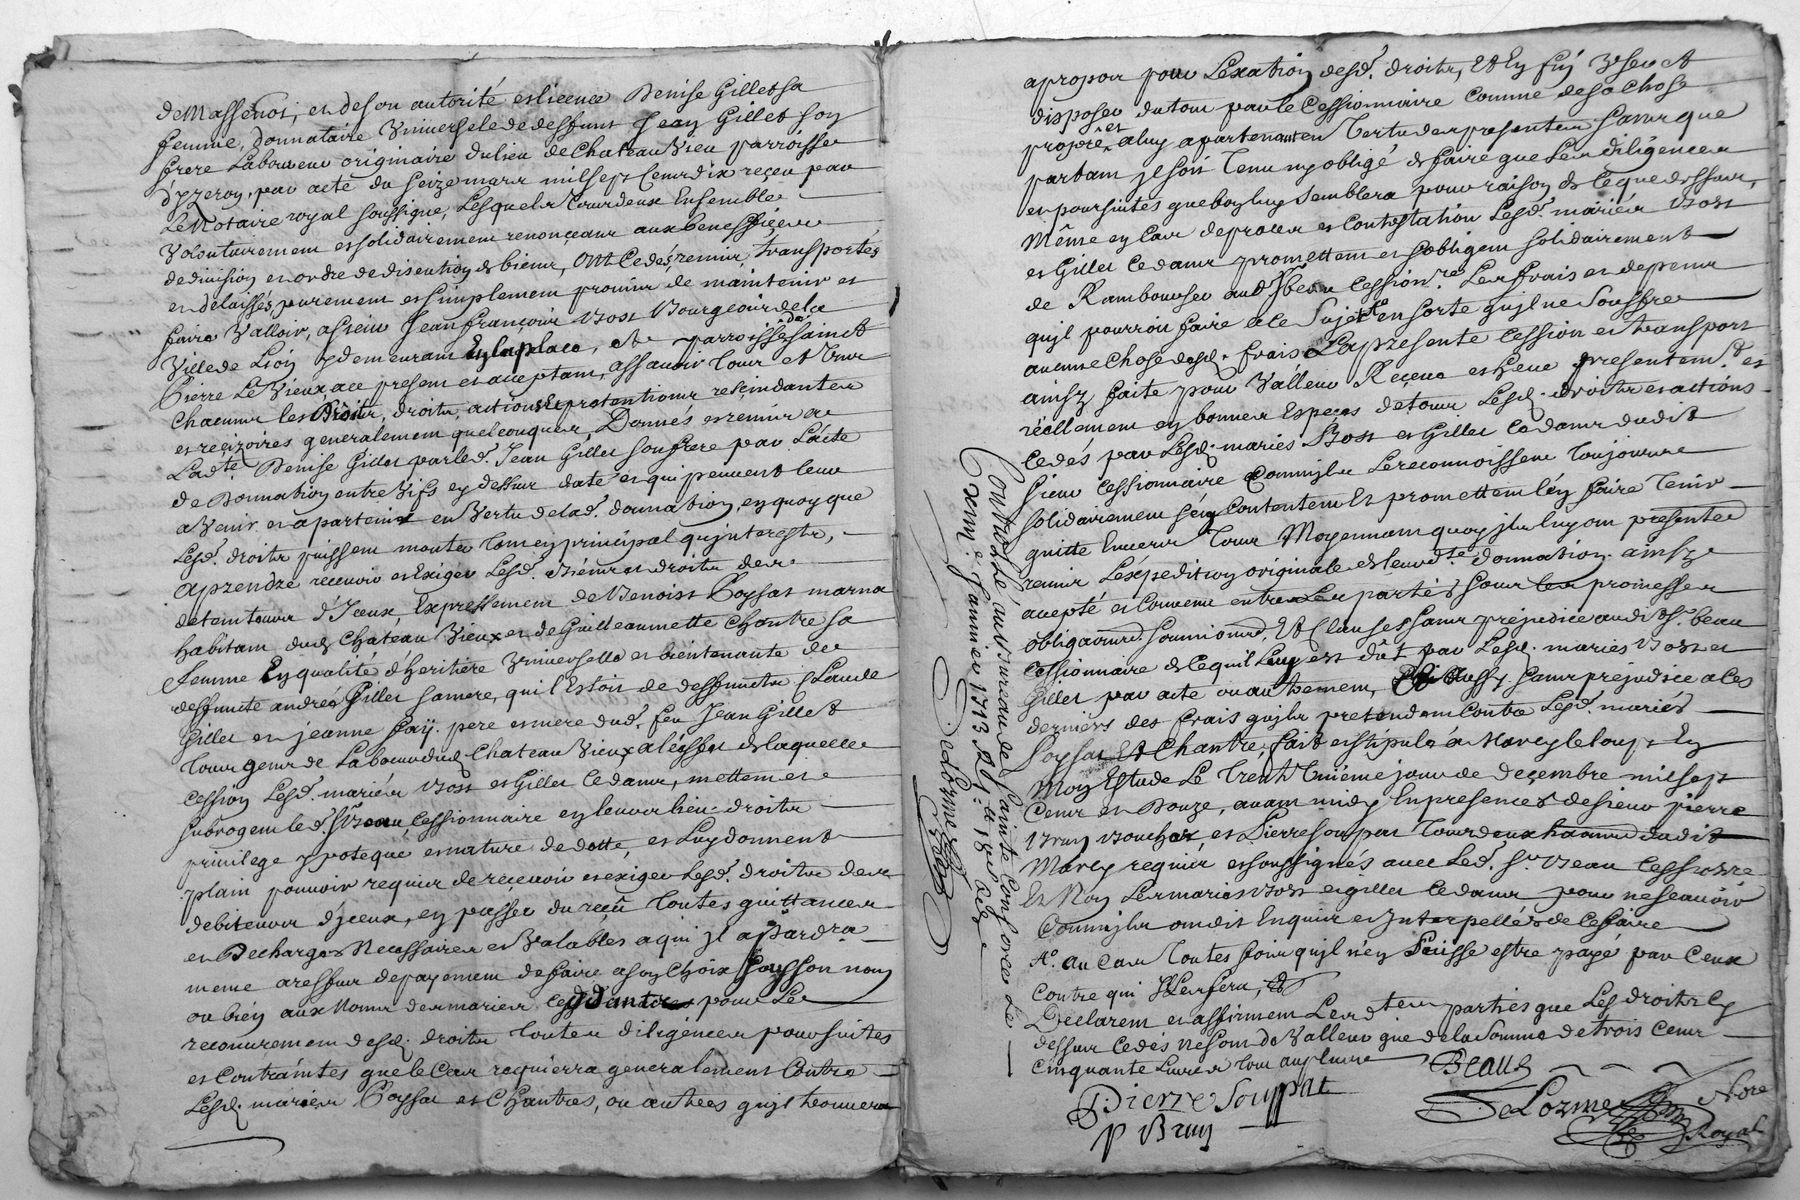 de Massenot, et de son autorité et licence Denise Gillet sa
femme, donnataire Universele de deffunt Jean Gillet son
frere Laboureur originaire du lieu de Chateau Vieu parroisse
d'yzeron, par acte du seize mars mil sept cens dix reçeu par
Le Notaire royal soussigné, Lesquels tous deux Ensemble
Volontairement et solidairement renonçeant aux beneffices
de division et ordre de discution de biens, ont cedés, remis, transportés
et delaissés, purement et simplement promis de maintenir et
faire Valloir, a sieur Jean françois Bourgeois de la
Ville de Lion y demeurant En la place, et parroisse de Sainct
Pierre Le Vieux ace present et aceptant, assavoir tous et Uns
Chacuns les Droits, droits, actions et pretentions rescindantes
et reçizoires generalement quelconques Donnés et remis a
Ladte Denise Gillet par led. Jean Gillet son frere par L'acte
de Donnation entre Vifs ey dessus daté et qui peuvent leur
avenir et apartenir en Vertu de lad. donnation, en quoy que
Lesd. droits puissent monter tant en principal qu'interests,
aprendre recevoir et Exiger Lesd. biens et droits des
detempteurs d'Iceux, Expressement de Benoist marna
habitant dud. Chateau Vieux et de Guilleaumette Chantre sa
femme En qualité d'heritiere Universelle et bientenante de
deffuncte andrée Gillet sa mere, qui l'Estoit de deffuncts Claude
Gillet et jeanne faÿ. pere et mere dud. feu Jean Gillet
tous gens de Labeur dud. Chateau Vieux a l'effet de laquelle
cession Lesd. mariés et Gillet Cedans, mettent et
subrogent led. Sr Beau, Cessionnaire en leurs lieu droits
privilege ypoteque et nature de dotte, et Luy donnent
plain pouvoir requis de reçevoir et exiger Lesd. droits des
debiteurs d'yceux, en passer du reçû toutes quittances
et Decharges Necessaires et Valables a qui Il apartiendra
meme a reffus de payement de faire a son choix sous son nom
ou bien aux Noms des maries ceddants pour Le
recouvrement desd. droits toutes diligences poursuites
et Contraintes que le Cas requierra generalement Contre
Lesd. mariés et Chantres, ou autres qu'il trouvera
apropos pour L'exation desd. droits, Et En fin User et
disposer du tout par le Cessionnaire Comme de sa Chose
propre et aluy apartenant en Vertu des presentes sans que
partant il soit tenu ny obligé de faire que Les diligences
et poursuites que bon luy semblera pour raison de ce que dessus,
Même en Cas de proces et Contestation Lesd. mariés
et Gillet Cedans promettent et s'obligent solidairement
de Rambourser audt Sr beau Cession.re Les frais et depens
qu'il pourroit faire a ce Sujet en sorte qu'il ne souffre
aucune Chose desd. frais La presente Cession et transport
ainsy faite pour Valleur Reçeue et heue presentemt et
réellement en bonnes Especes de tous Lesd. droits et actions
Cedés par Lesd. mariés et Gillet Cedans dudit
sieur Cessionnaire Comm'ils Le reconnoissent toujours
solidairement s'en Contentent et promettent l'en faire tenir
quitte Envers tous Moyennant quoy ils luy ont presentemt
remis L'expedition originale de leurdte donnation ainsy
acepté et Convenu entre Les parties sous les promesses
obligaons. soumisons. Et Clauses sans prejudice audit Sr. beau
Cessionnaire de ce qui Luy est dût par Lesd. mariés et
Gillet par acte ou autrement, aussy sans prejudice a ces
derniers des frais qu'ils pretendent Contre Lesd. mariés
Et Chantre, fait et stipulé a Marcy le loup En
Mon Estude Le trente unième jour de deçembre mil sept
Cens et Douze, avant midy En presences de sieur pierre
Brun et Pierre Souppat tous deux dudit
Marcy requis et soussignés avec Led. Sr. Beau Cessionre
Et Non Les mariés et gillet Cedans pour ne scavoir
Comm'ils ont dit Enquis et Interpellés de Ce faire
Ao. au Cas toutes fois qu'il n'en Puisse estre payé par Ceux
Contre qui Il Les fera,
Declarent et affirment Les dtes parties que Les droits cy
dessus Cedes ne sont de Valleur que de la Somme de trois Cens
Cinquante Livres tout au plus
Beaud
Pierre Souppat
P Brun
DeLorme Nore
Royal
Controslé au bureau de Sainte Consorce le
janvier 1713
Delorme